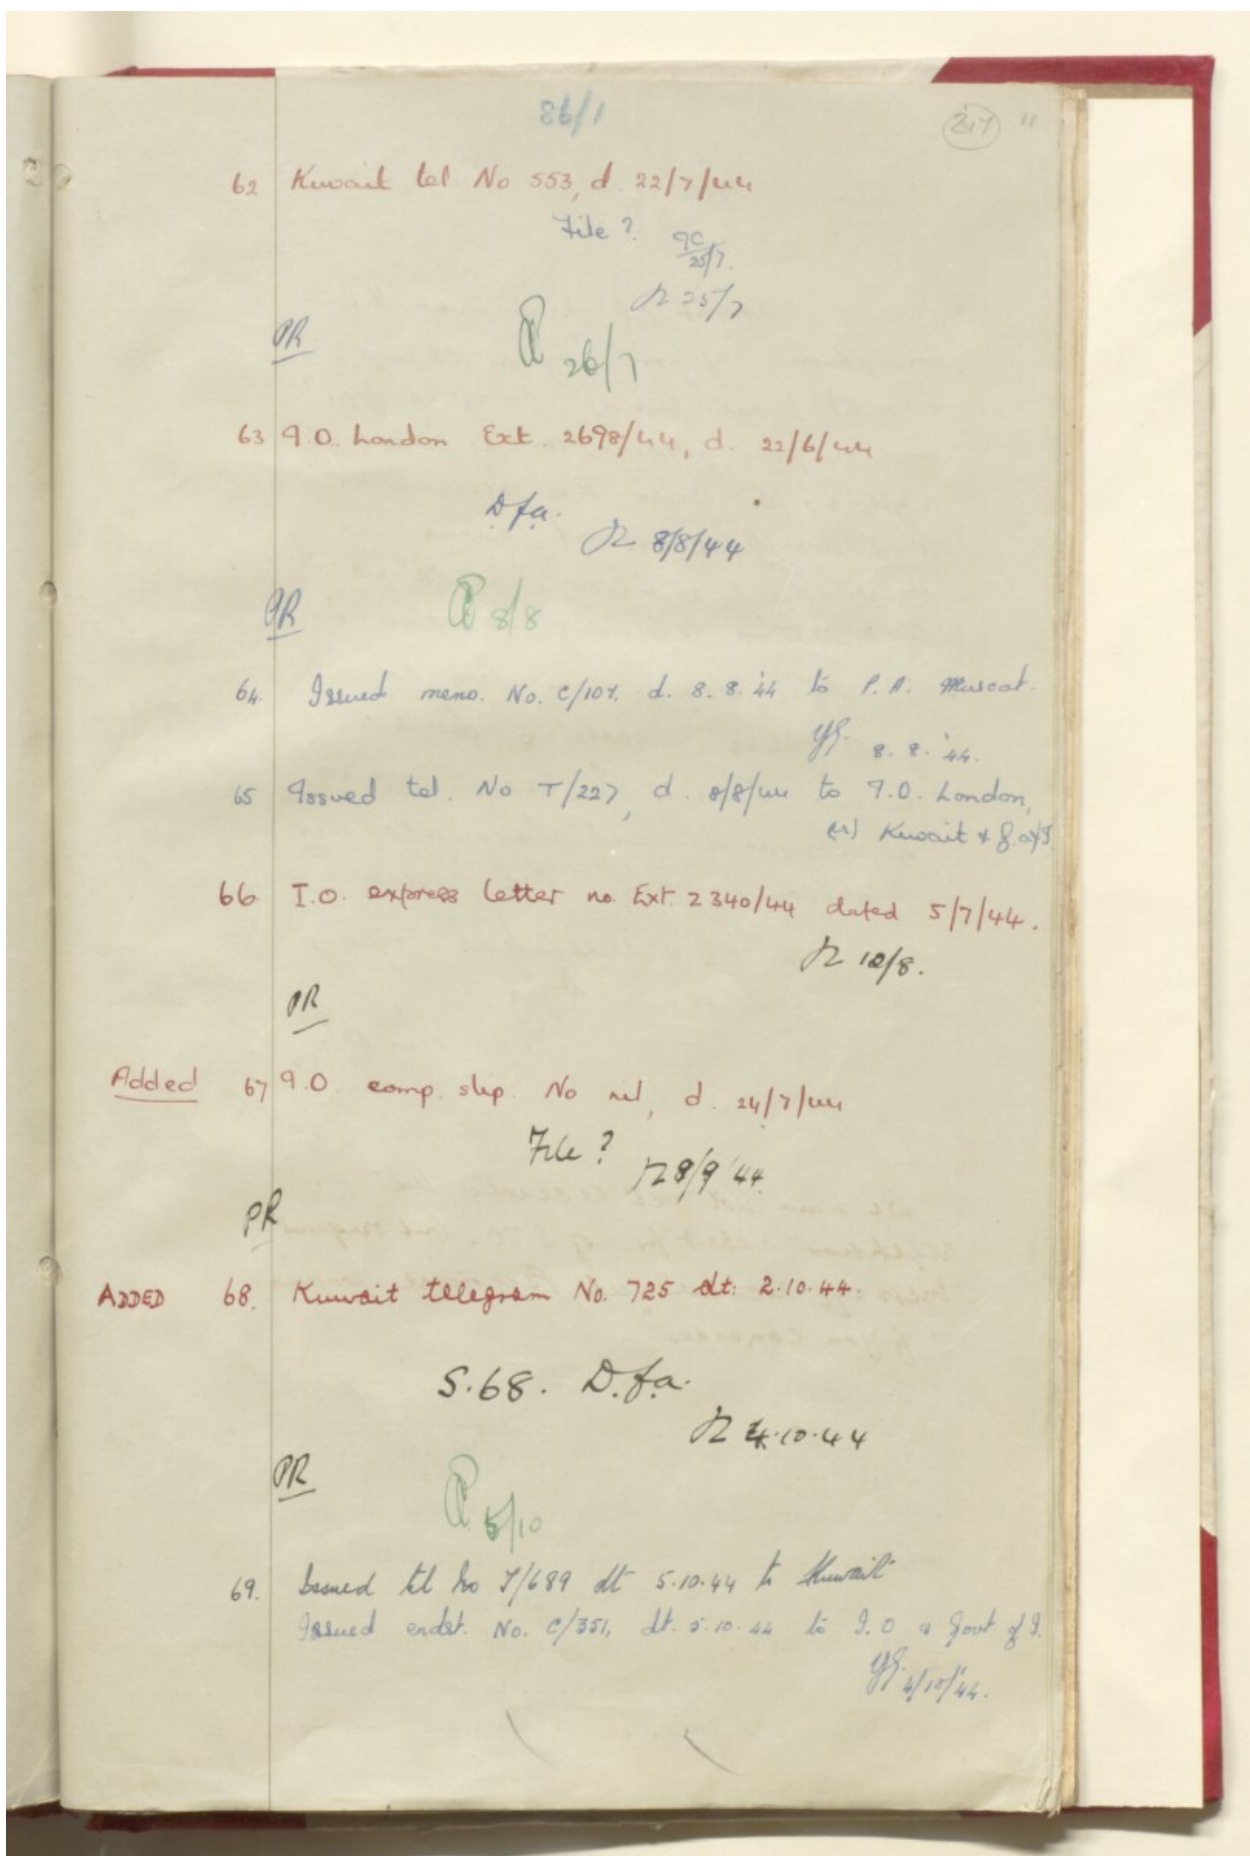 86/1
217
62 Kuwait tel No 553, d. 22/7/44
File ?
25/7.
25/7
PR
26/7
63 I.O. London Ext. 2698/44, d. 22/6/44
D.f.a.
8/8/44
PR
8/8
64. Issued memo. No. C/107, d. 8.8.'44 to P.A. Muscat.
8.8.'44.
65 Issued tel. No T/227, d. 8/8/44 to I.O. London,
(r) Kuwait & G. of I.
66 I.O. express letter no. Ext. 2340/44 dated 5/7/44.
10/8.
PR
Added 67 I.O comp. slip. No nil, d. 24/7/44
File ?
8/9/44
PR
ADDED 68. Kuwait telegram No. 725 dt: 2.10.44.
S.68. D.f.a.
4.10.44
PR
5/10
69. Issued tel no T/689 dt 5.10.44 to Kuwait
Issued endst. No. C/351, dt. 5.10.44 to I.O & Govt. of I.
4/10/'44.